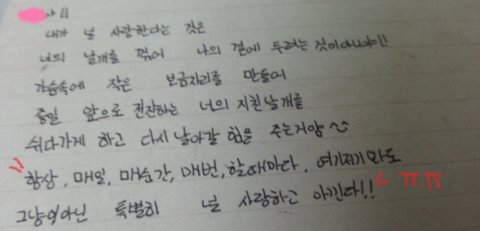 야!!
내가 널 사랑한다는 것은
너의 날개를 꺾어 나의 곁에 두려는것이아니야!!
가슴속에 작은 보금자리를 만들어
종일 앞으로 전진하는 너의 지친날개를
쉬다가게 하고 다시 날아갈 힘을 주는거얌~
항상, 매일, 매순간, 매번, 할때마다, 여기저기와도
그냥이아닌 특별히 널 사랑하고 아낀다!! ㅠㅠ